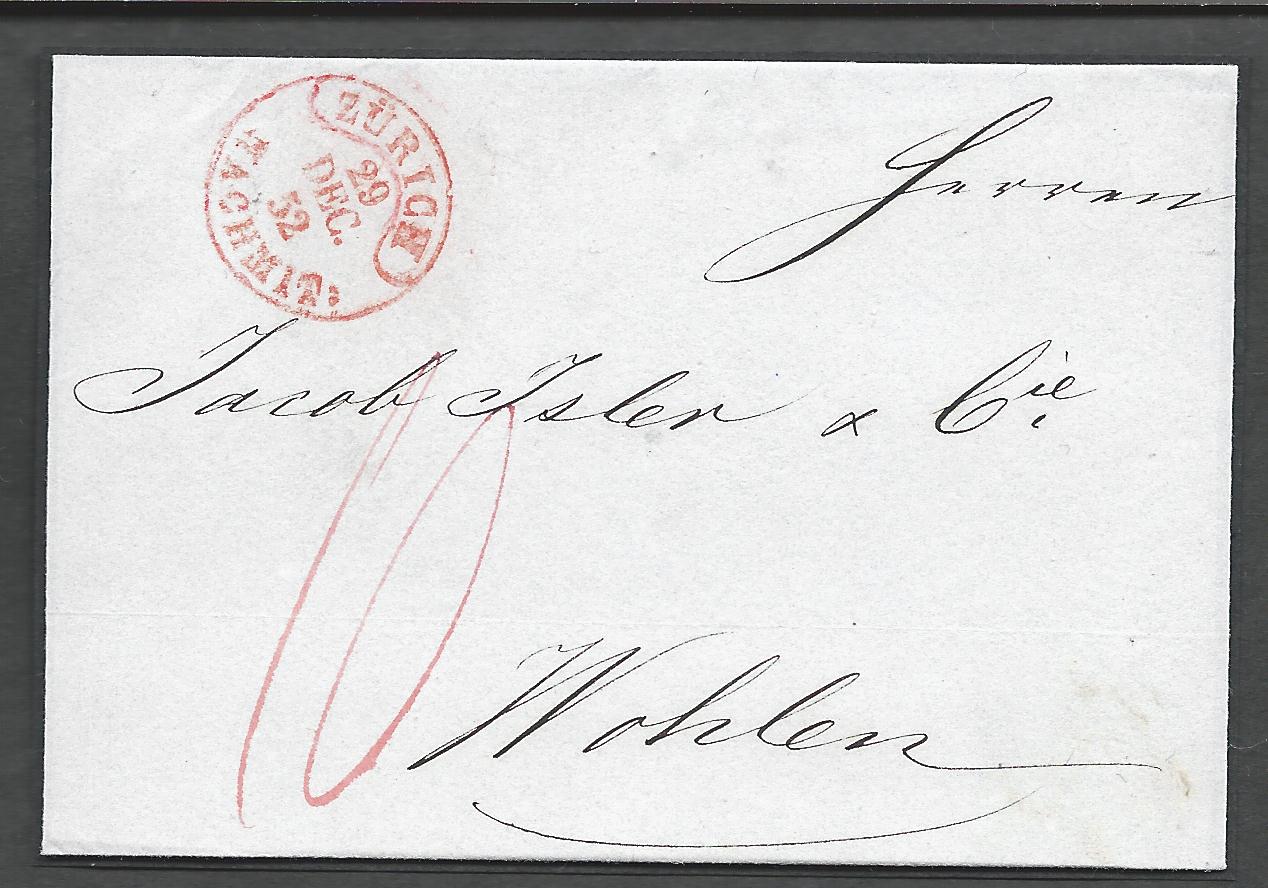 ZÜRICH
29
DEC.
52
NACHMIT:
Herren
Jacob Isler & Cie.
10
Wohlen